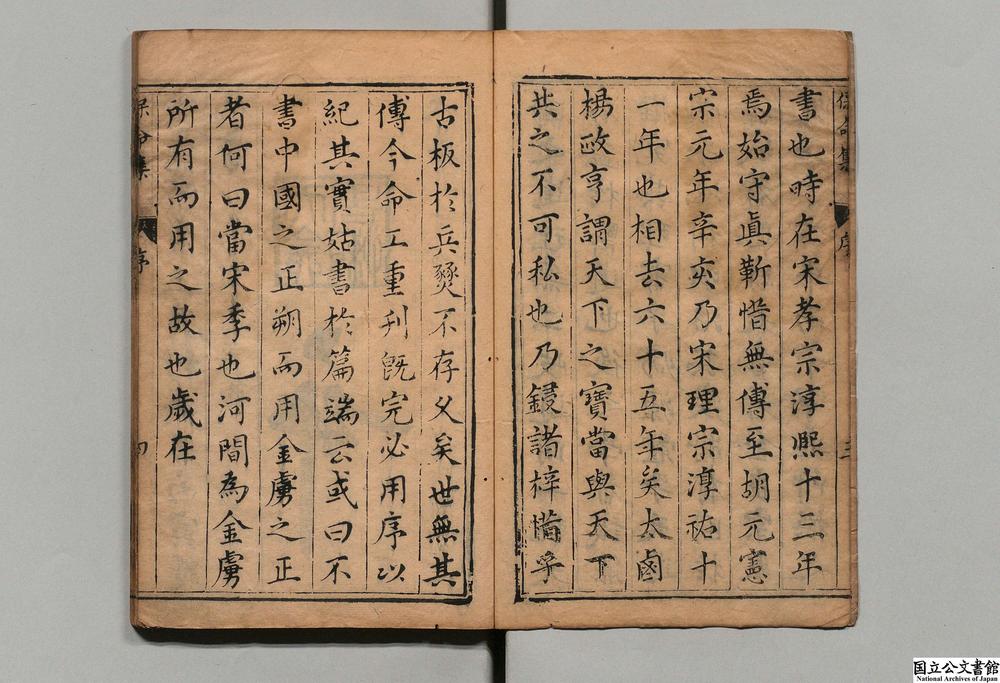 保命集
序
三
書也時在宋孝宗淳熙十三年
焉始守眞靳惜無傳至胡元憲
宗元年辛亥乃宋理宗淳祐十
一年也相去六十五年矣太鹵
楊政亨謂天下之寶當與天下
共之不可私也乃鋟諸梓惜乎
古板於兵燹不存久矣世無其
傳今命工重刊旣完必用序以
紀其實姑書於篇端云或曰不
書中國之正朔而用金虜之正
者何曰當宋季也河間為金虜
所有而用之故也歲在
保命集
序
四
国立公文書館
National Archives of Japan